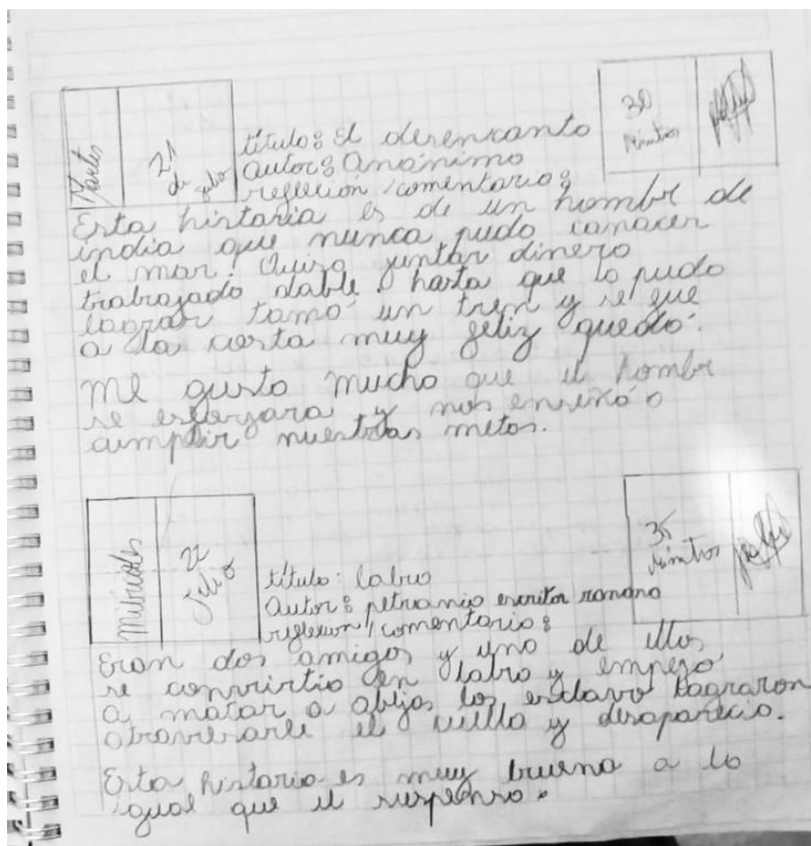 Martes
21
de julio
30
Minutos
título: El desencanto
autor: Anónimo
reflexión / comentario:
Esta historia es de un hombre de
india que nunca pudo conocer
el mar. Quiso juntar dinero
trabajado doble. hasta que lo pudo
lograr tomó un tren y se fue
a la costa muy feliz quedó.
Me gusto mucho que el hombre
se esforzara y nos enseñó a
cumplir nuestras metas.
Miercoles
22
Julio
35
Minutos
título: lobro
Autor: petronio escritor romano
reflexion / comentario:
Eran dos amigos y uno de ellos
se convirtio en lobro y empezó
a matar a obejas los esclavo lograron
atravesarle el cuello y desaparecio.
Esta historia es muy buena a lo
igual que el suspenso.